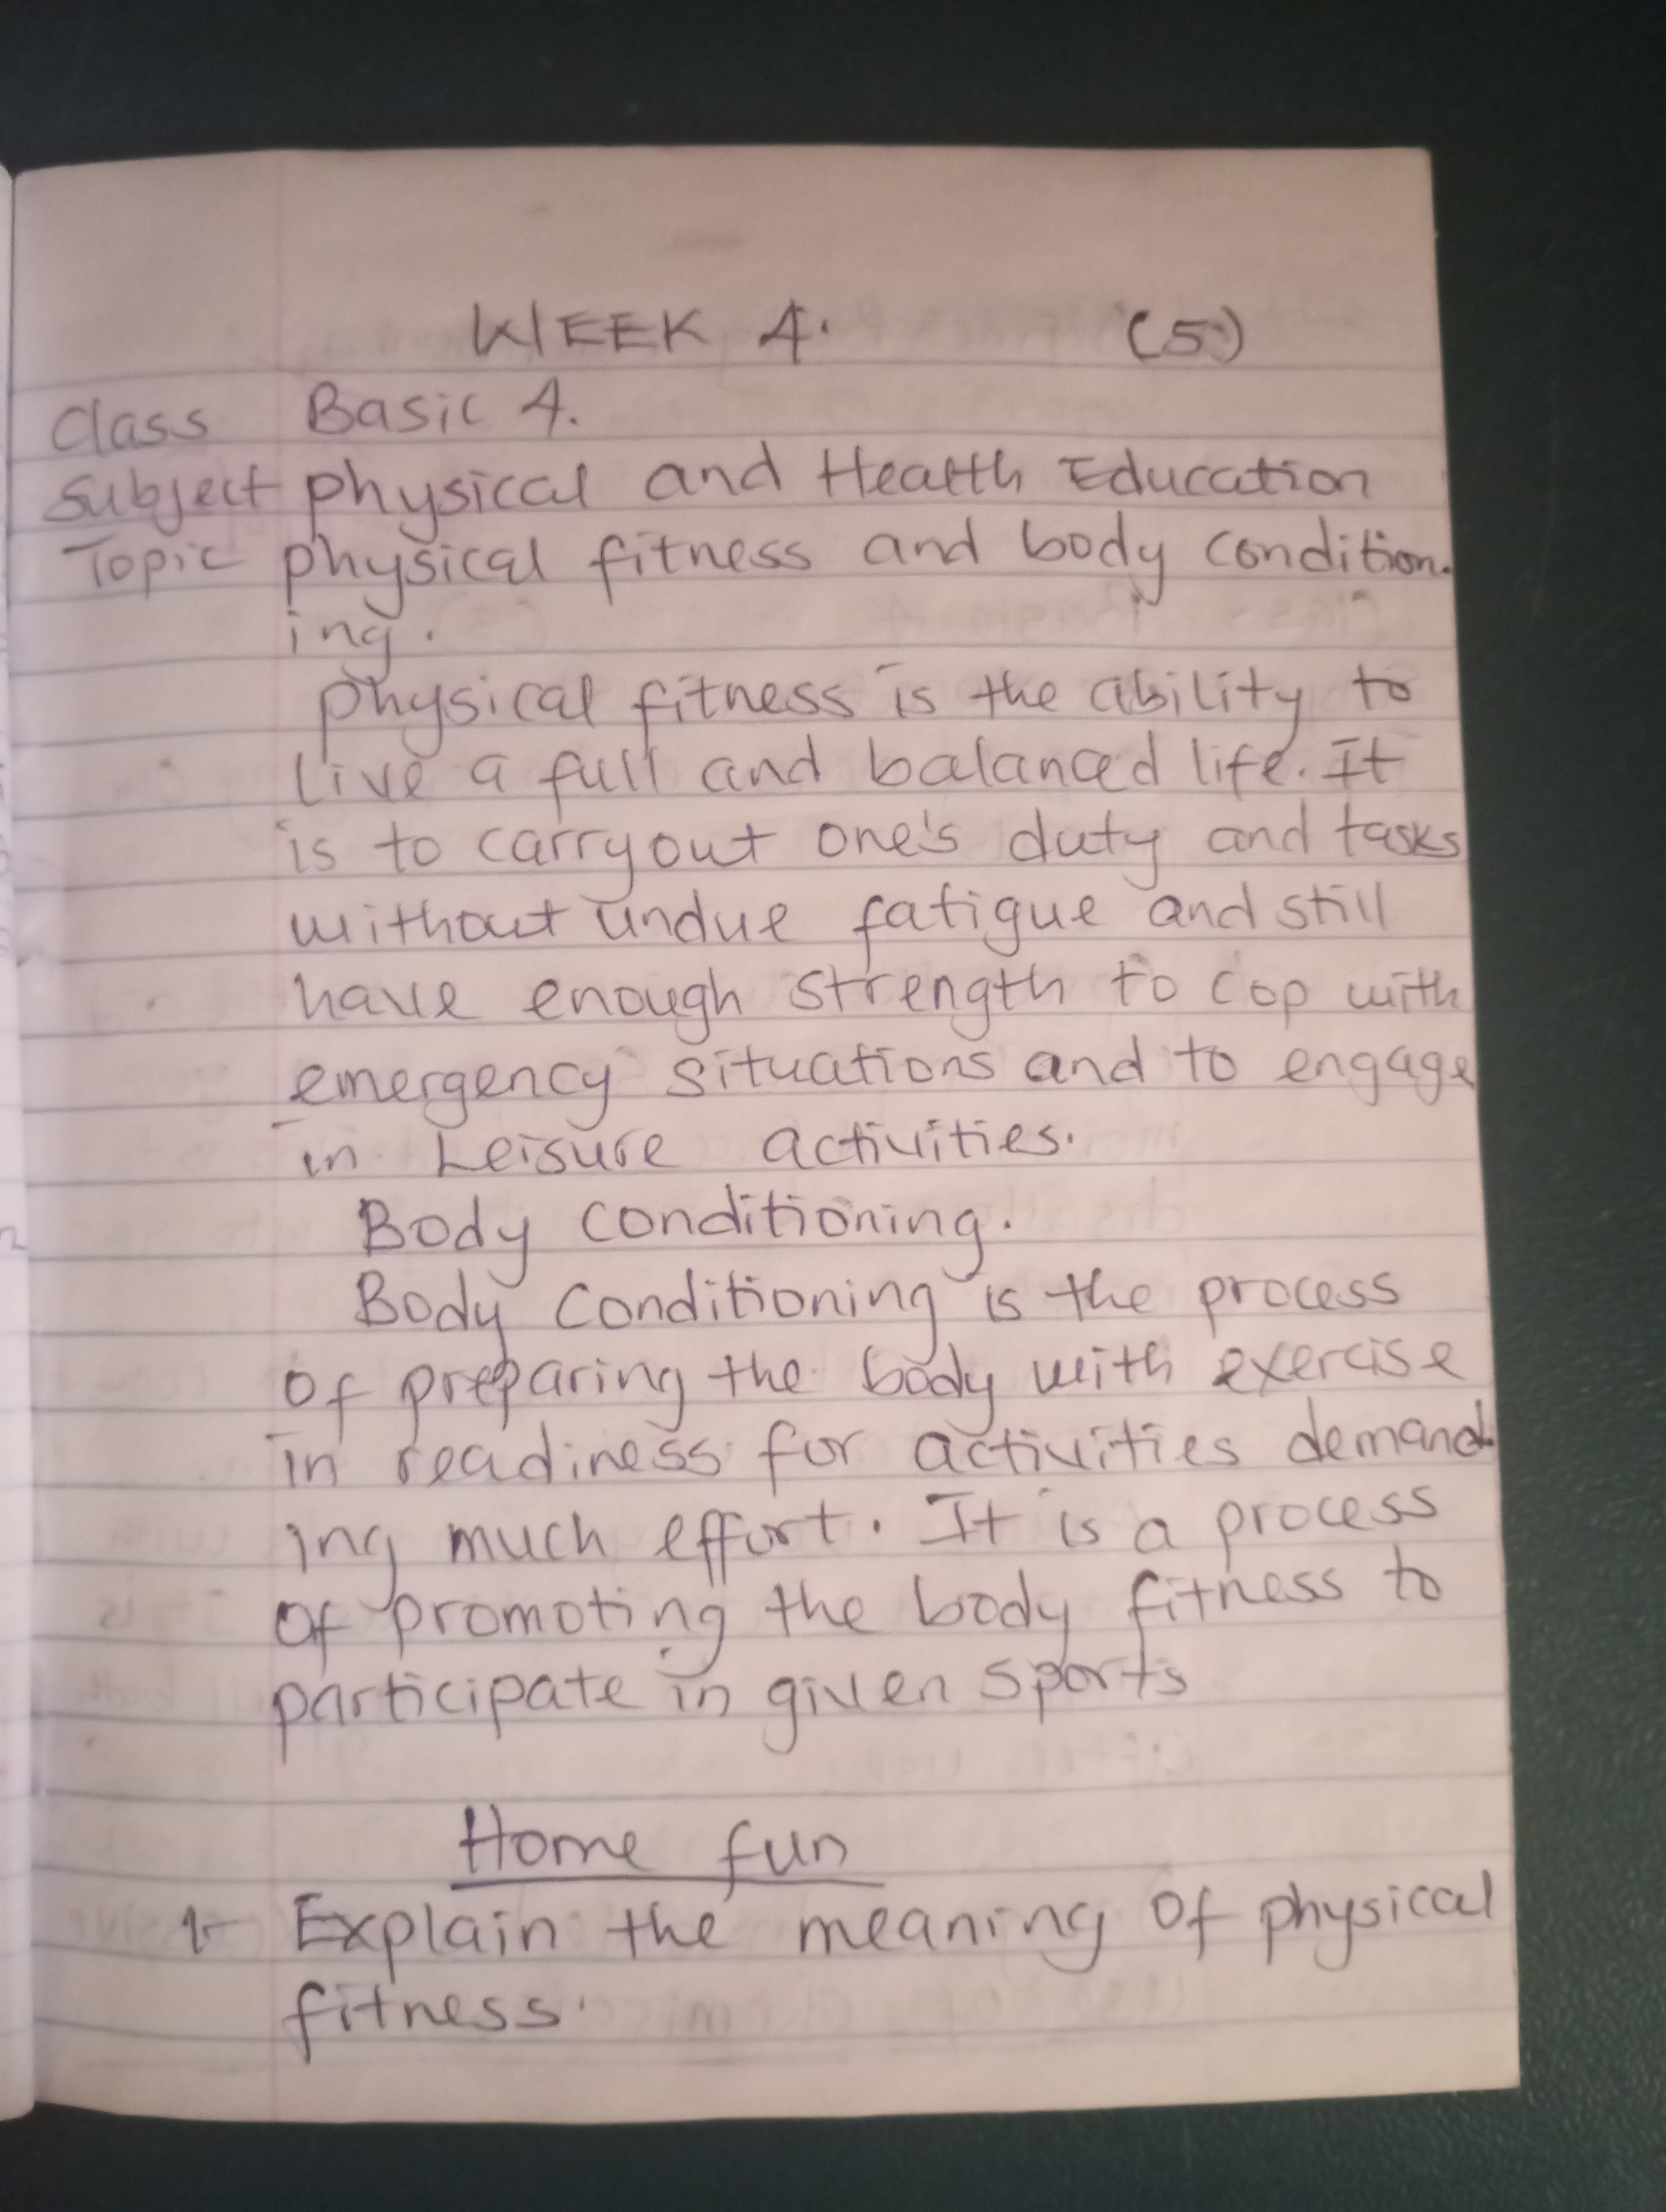 WEEK 4. (5)
Class Basic 4.
Subject physical and Health Education
Topic physical fitness and body condition-
ing.
physical fitness is the ability to
live a full and balanced life. It
is to carryout one's duty and tasks
without undue fatigue and still
have enough strength to cop with
emergency situations and to engage
in Leisure activities.
Body conditioning.
Body conditioning is the process
of preparing the body with exercise
in readiness for activities demand-
ing much effort. It is a process
of promoting the body fitness to
participate in given sports
Home fun
1- Explain the meaning of physical
fitness.